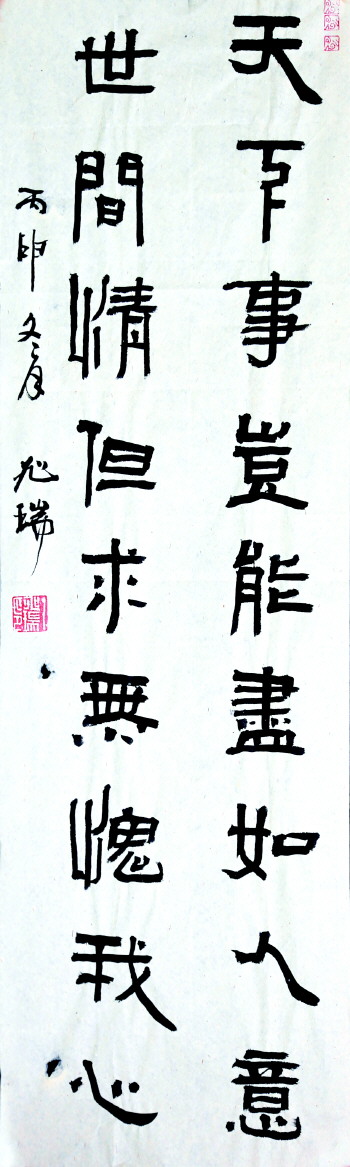 天下事豈能盡如人意
世間情但求無愧我心
丙申冬月 旭瑞